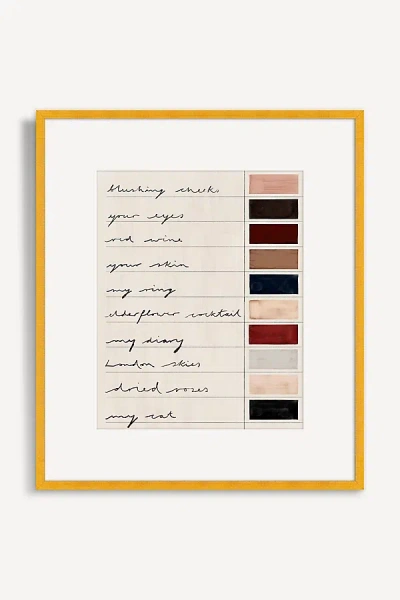 blushing cheeks
your eyes
red wine
your skin
my ring
elderflower cocktail
my diary
London skies
dried roses
my cat